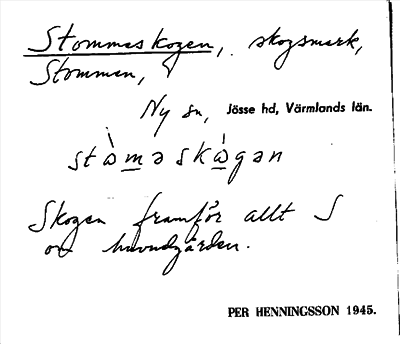 Stommeskogen, skogsmark,
Stommen,
Ny sn, Jösse hd, Värmlands län.
stὼmə skὼgən
Skogen framför allt S
om huvudgården.
PER HENNINGSSON 1945.